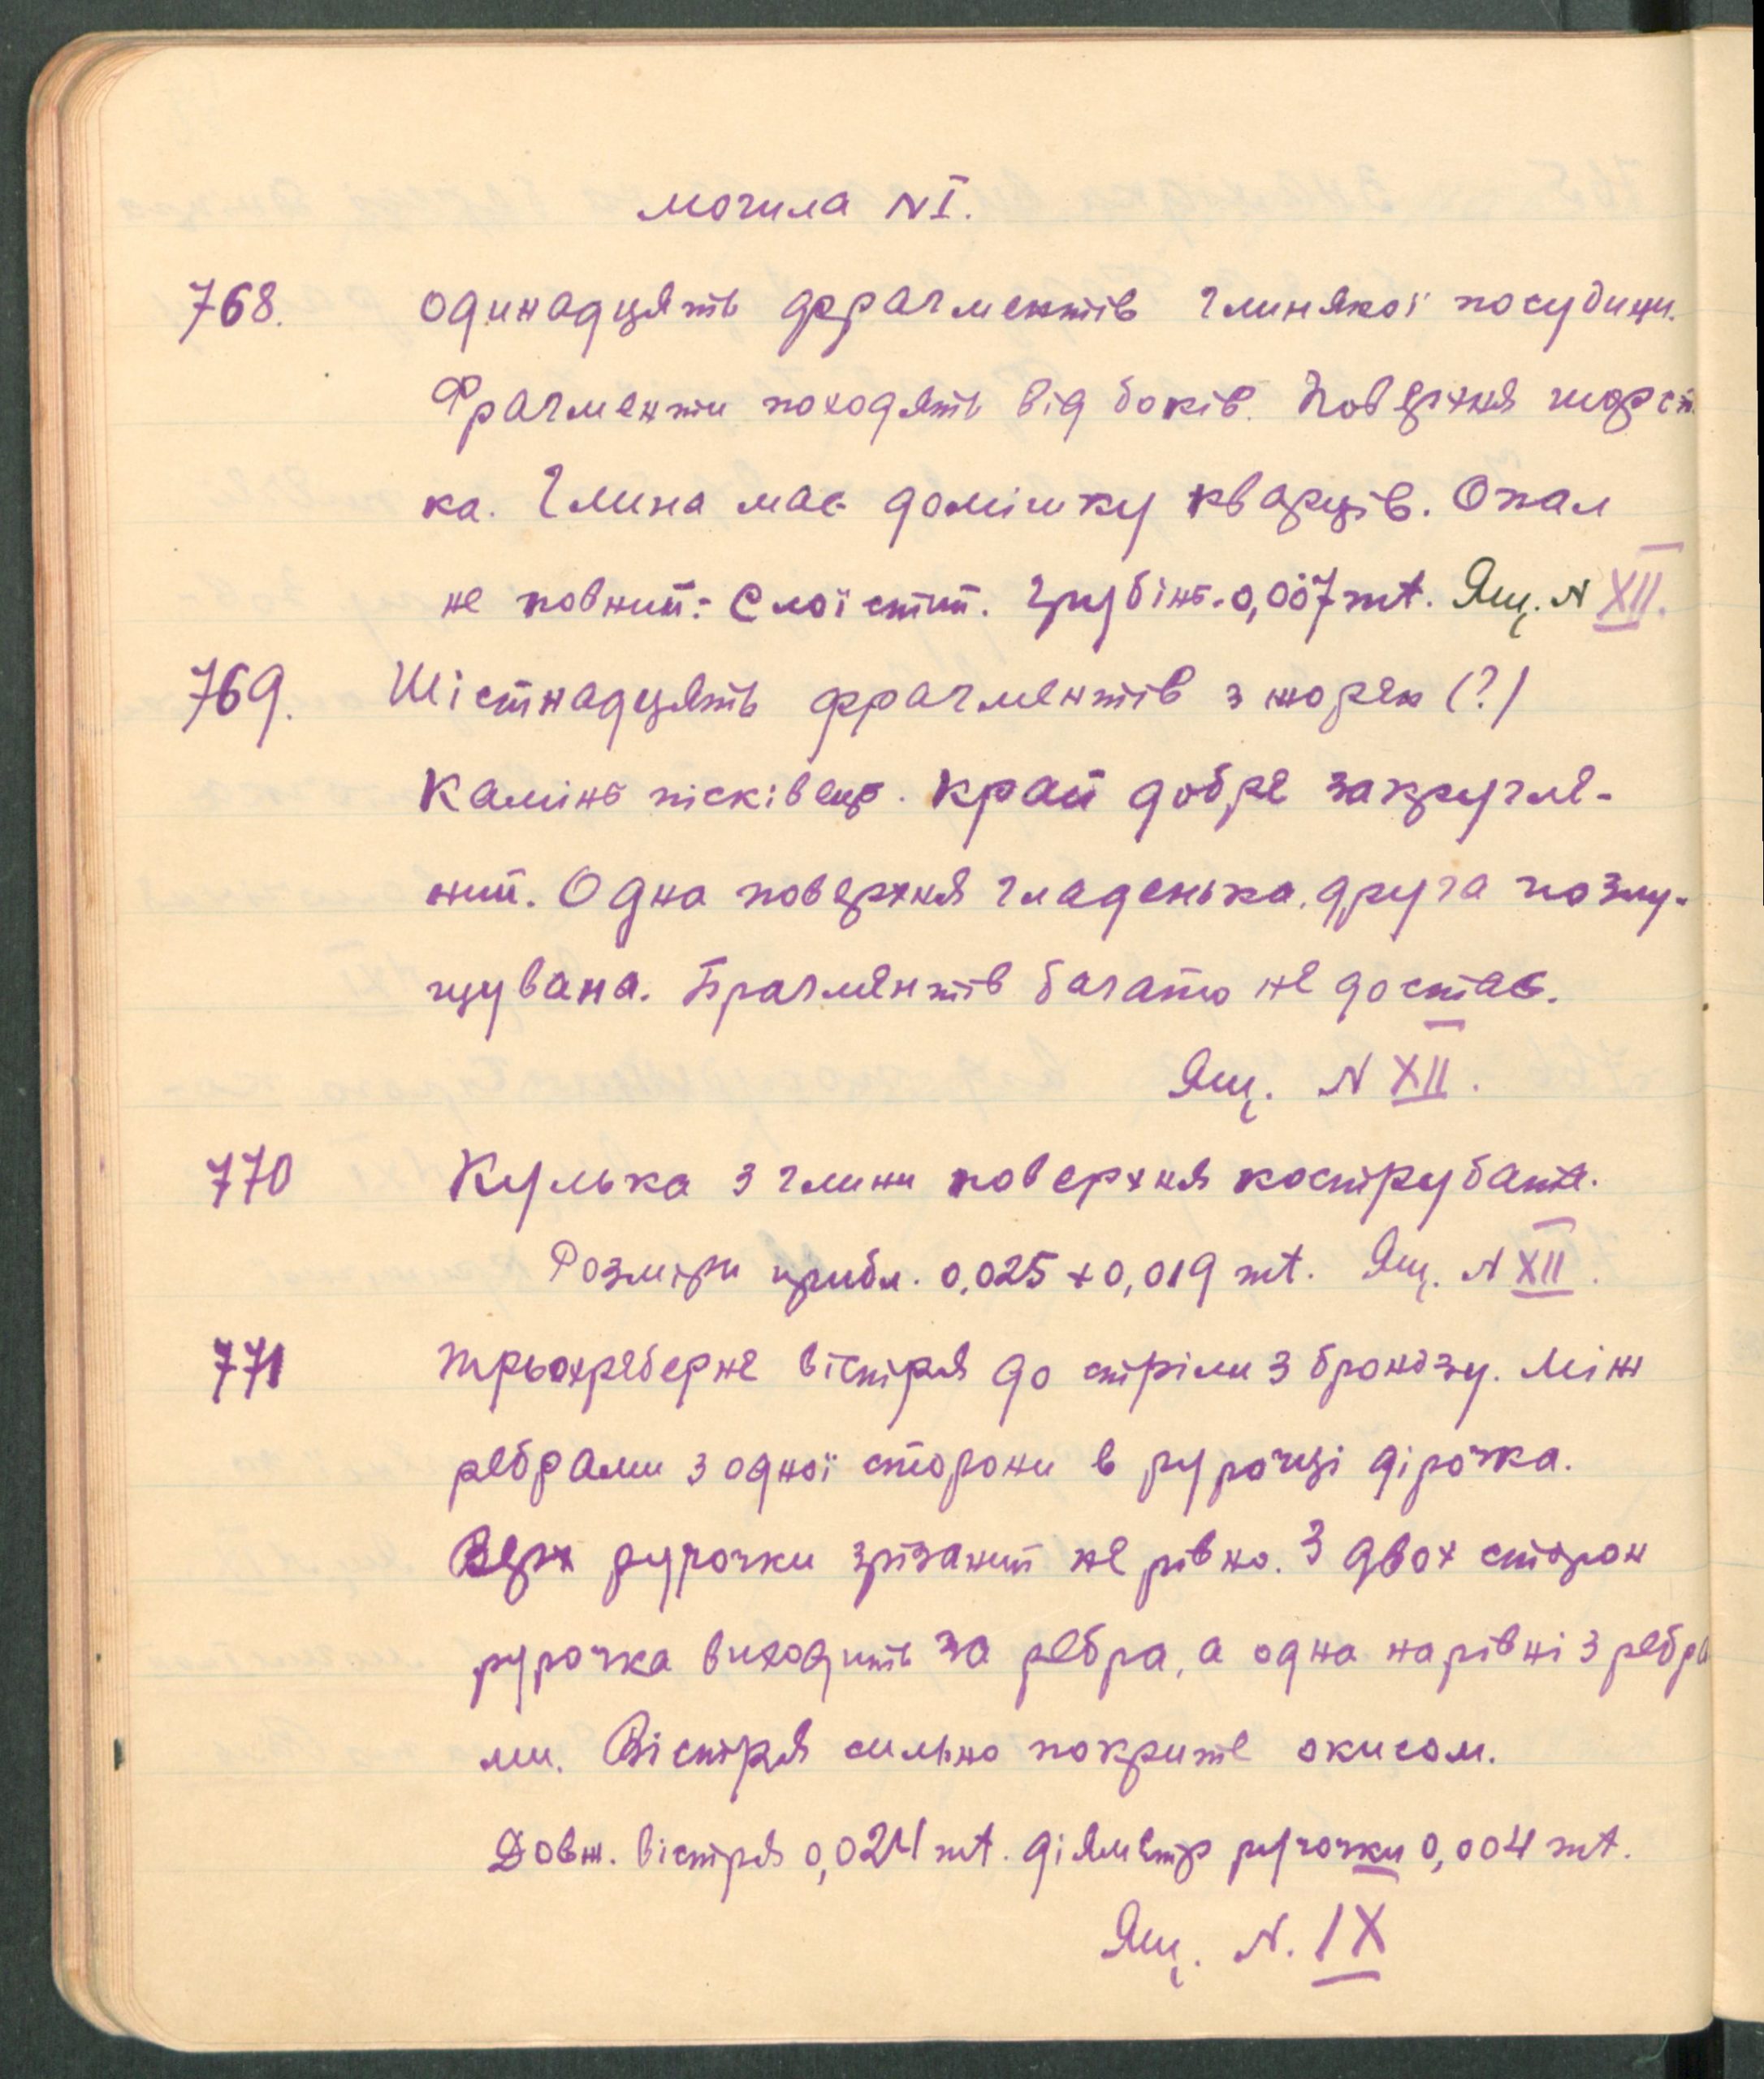 могила N I.
768. одинадцять фрагментів глиняної посудини.
Фрагменти походять від боків. Поверхня шорст
ка. Глина має домішку кварців. Опал
не повний: слоїстий. Грубінь-0,007 mt. Ящ. N XII.
769. Шістнадцять фрагментів з жорен (?)
Камінь пісківець. Край добре закругле-
ний. Одна поверхня гладенька, друга позлу-
щувана. Фрагментів багато не достає.
Ящ. N XII.
770 Кулька з глини поверхня кострубата.
Розміри прибл. 0,025 x 0,019 mt. Ящ. N XII.
771 трьохреберне вістря до стріли з бронзу. Між
ребрами з одної сторони в рурочці дірочка.
Верх рурочки зрізаний не рівно. З двох сторон
рурочка виходить за ребра, а одна нарівні з ребра
ми. Вістря сильно покрите окисом.
Довж. вістря 0,024 mt. діяметр рурочки 0,004 mt.
Ящ. N. IX